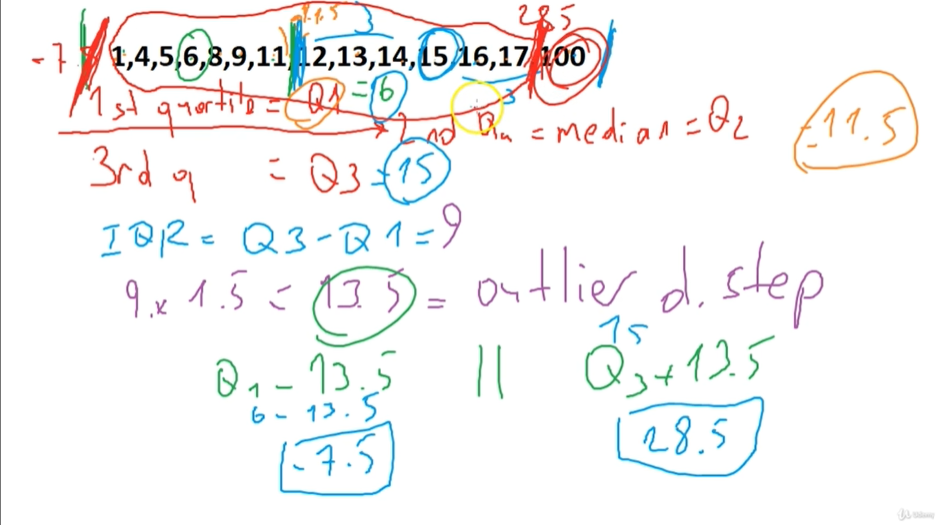 11.5 3 28.5
-7 1,4,5,6,8,9,11,12,13,14,15,16,17,100
1st quartile = Q1 = 6 3
2nd Qu = median = Q2 = 11.5
3rd q = Q3 = 15
IQR = Q3 - Q1 = 9
9 x 1.5 = 13.5 = outlier d. step
15
Q1 - 13.5 || Q3 + 13.5
6 - 13.5
-7.5 28.5
Udemy